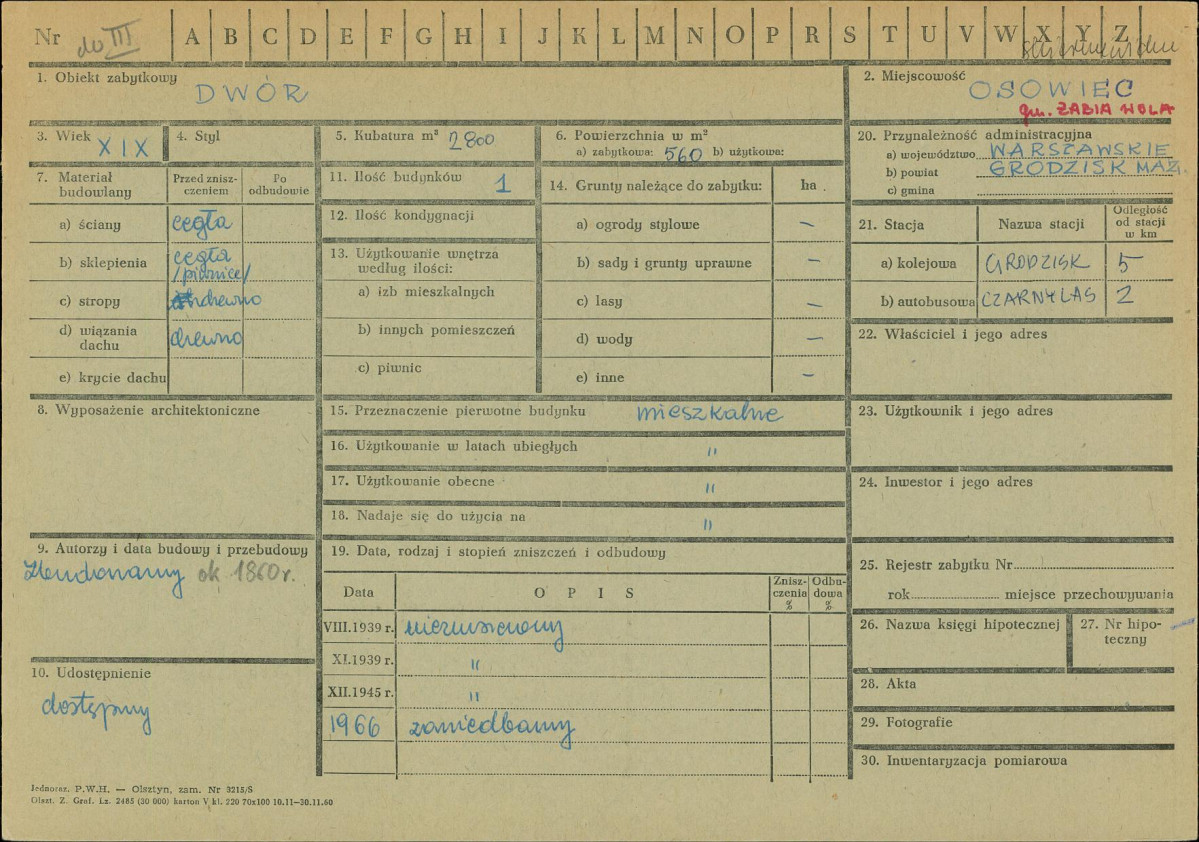 Nr do III A B C D E F G H I J K L M N O P R S T U V W X Y Z
1. Obiekt zabytkowy
DWÓR
2. Miejscowość
OSOWIEC
gm. ŻABIA WOLA
3. Wiek XIX
4. Styl
5. Kubatura m³ 2800
6. Powierzchnia w m²
a) zabytkowa: 560 b) użytkowa:
20. Przynależność administracyjna
a) województwo WARSZAWSKIE
b) powiat GRODZISK MAZ.
c) gmina
7. Materiał budowlany
Przed zniszczeniem
Po odbudowie
a) ściany cegła
b) sklepienia cegła /piwnice/
c) stropy drewno
d) wiązania dachu drewno
e) krycie dachu
11. Ilość budynków 1
12. Ilość kondygnacji
13. Użytkowanie wnętrza
według ilości:
a) izb mieszkalnych
b) innych pomieszczeń
c) piwnic
14. Grunty należące do zabytku: ha
a) ogrody stylowe –
b) sady i grunty uprawne –
c) lasy –
d) wody –
e) inne –
21. Stacja Nazwa stacji Odległość od stacji w km
a) kolejowa GRODZISK 5
b) autobusowa CZARNY LAS 2
22. Właściciel i jego adres
8. Wyposażenie architektoniczne
15. Przeznaczenie pierwotne budynku mieszkalne
16. Użytkowanie w latach ubiegłych "
17. Użytkowanie obecne "
18. Nadaje się do użycia na "
23. Użytkownik i jego adres
24. Inwestor i jego adres
9. Autorzy i data budowy i przebudowy
Zbudowany ok 1860 r.
19. Data, rodzaj i stopień zniszczeń i odbudowy
Data OPIS Zniszczenia % Odbudowa %
VIII.1939 r. niezniszczony
XI.1939 r. "
XII.1945 r. "
1966 zaniedbany
25. Rejestr zabytku Nr
rok miejsce przechowywania
26. Nazwa księgi hipotecznej
27. Nr hipoteczny
10. Udostępnienie
dostępny
28. Akta
29. Fotografie
30. Inwentaryzacja pomiarowa
Jednoraz. P.W.H. — Olsztyn, zam. Nr 3215/S
Olszt. Z. Graf. Lz. 2485 (30 000) karton V kl. 220 70x100 10.11—30.11.60